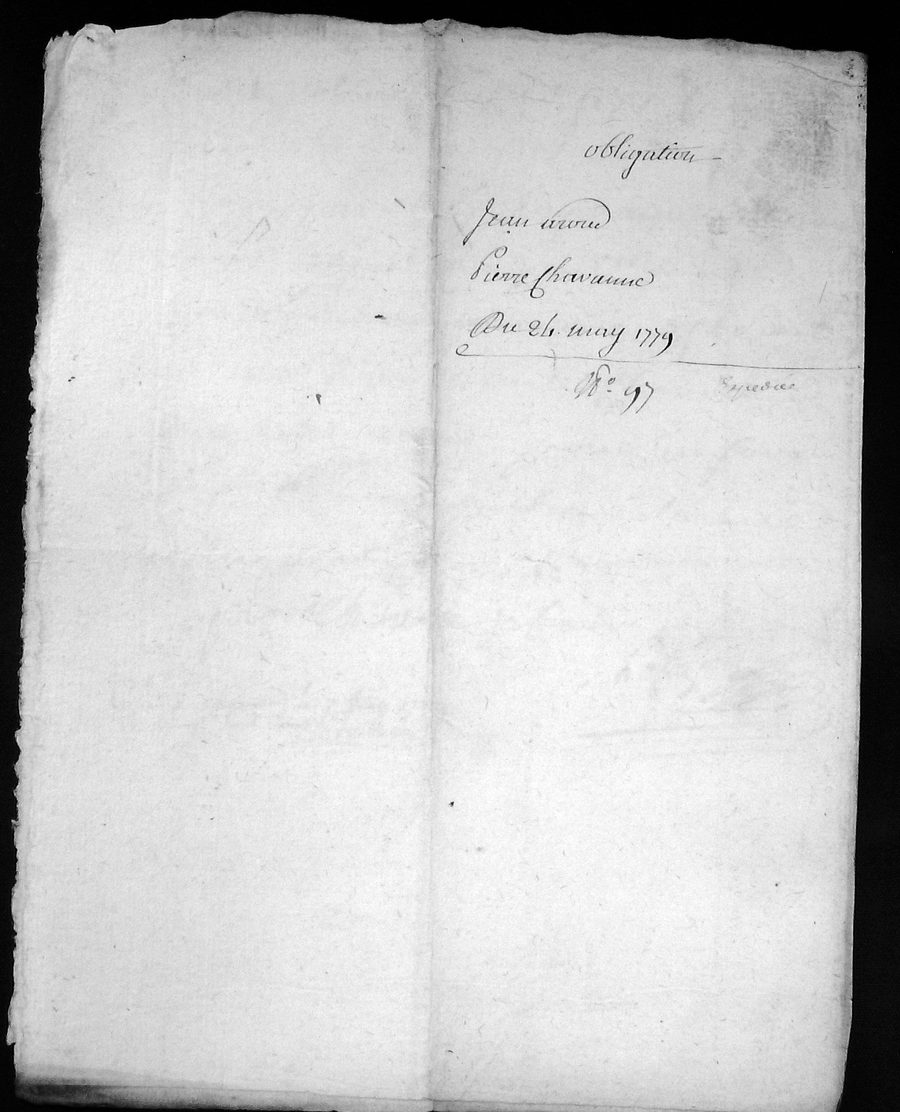 obligation
Jean
Pierre Chavanne
Du 24 may 1779
No. 97 Expediée